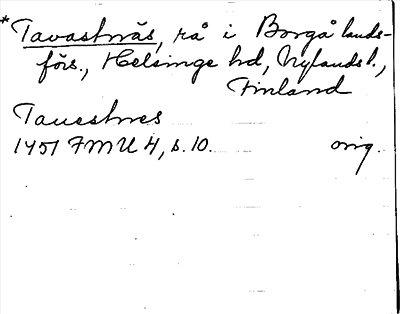 *Tavastnäs, rå i Borgå lands-
förs., Helsinge hd, Nylands l.,
Finland
Tauestnes
1451 FMU 4, s. 10. orig.